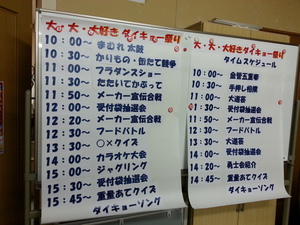 大・大・大好きダイキョー祭り
10:00～ まむれ太鼓
10:30～ かりもの・缶たて競争
11:00～ フラダンスショー
11:30～ たたいてかぶって
11:50～ メーカー宣伝合戦
12:00～ 受付袋抽選会
12:20～ メーカー宣伝合戦
12:30～ フードバトル
13:30～ ○×クイズ
14:00～ カラオケ大会
15:00～ ジャグリング
15:30～ 受付袋抽選会
15:45～ 重量あてクイズ
ダイキョーソング
大・大・大好きダイキョー祭り
タイムスケジュール
10:00～ 金管五重奏
10:30～ 手押し相撲
11:00～ 大道芸
11:30～ 受付袋抽選会
11:50～ メーカー宣伝合戦
12:30～ フードバトル
13:30～ 大道芸
14:00～ 受付袋抽選会
14:20～ 勇士会紹介
14:45～ 重量あてクイズ
ダイキョーソング